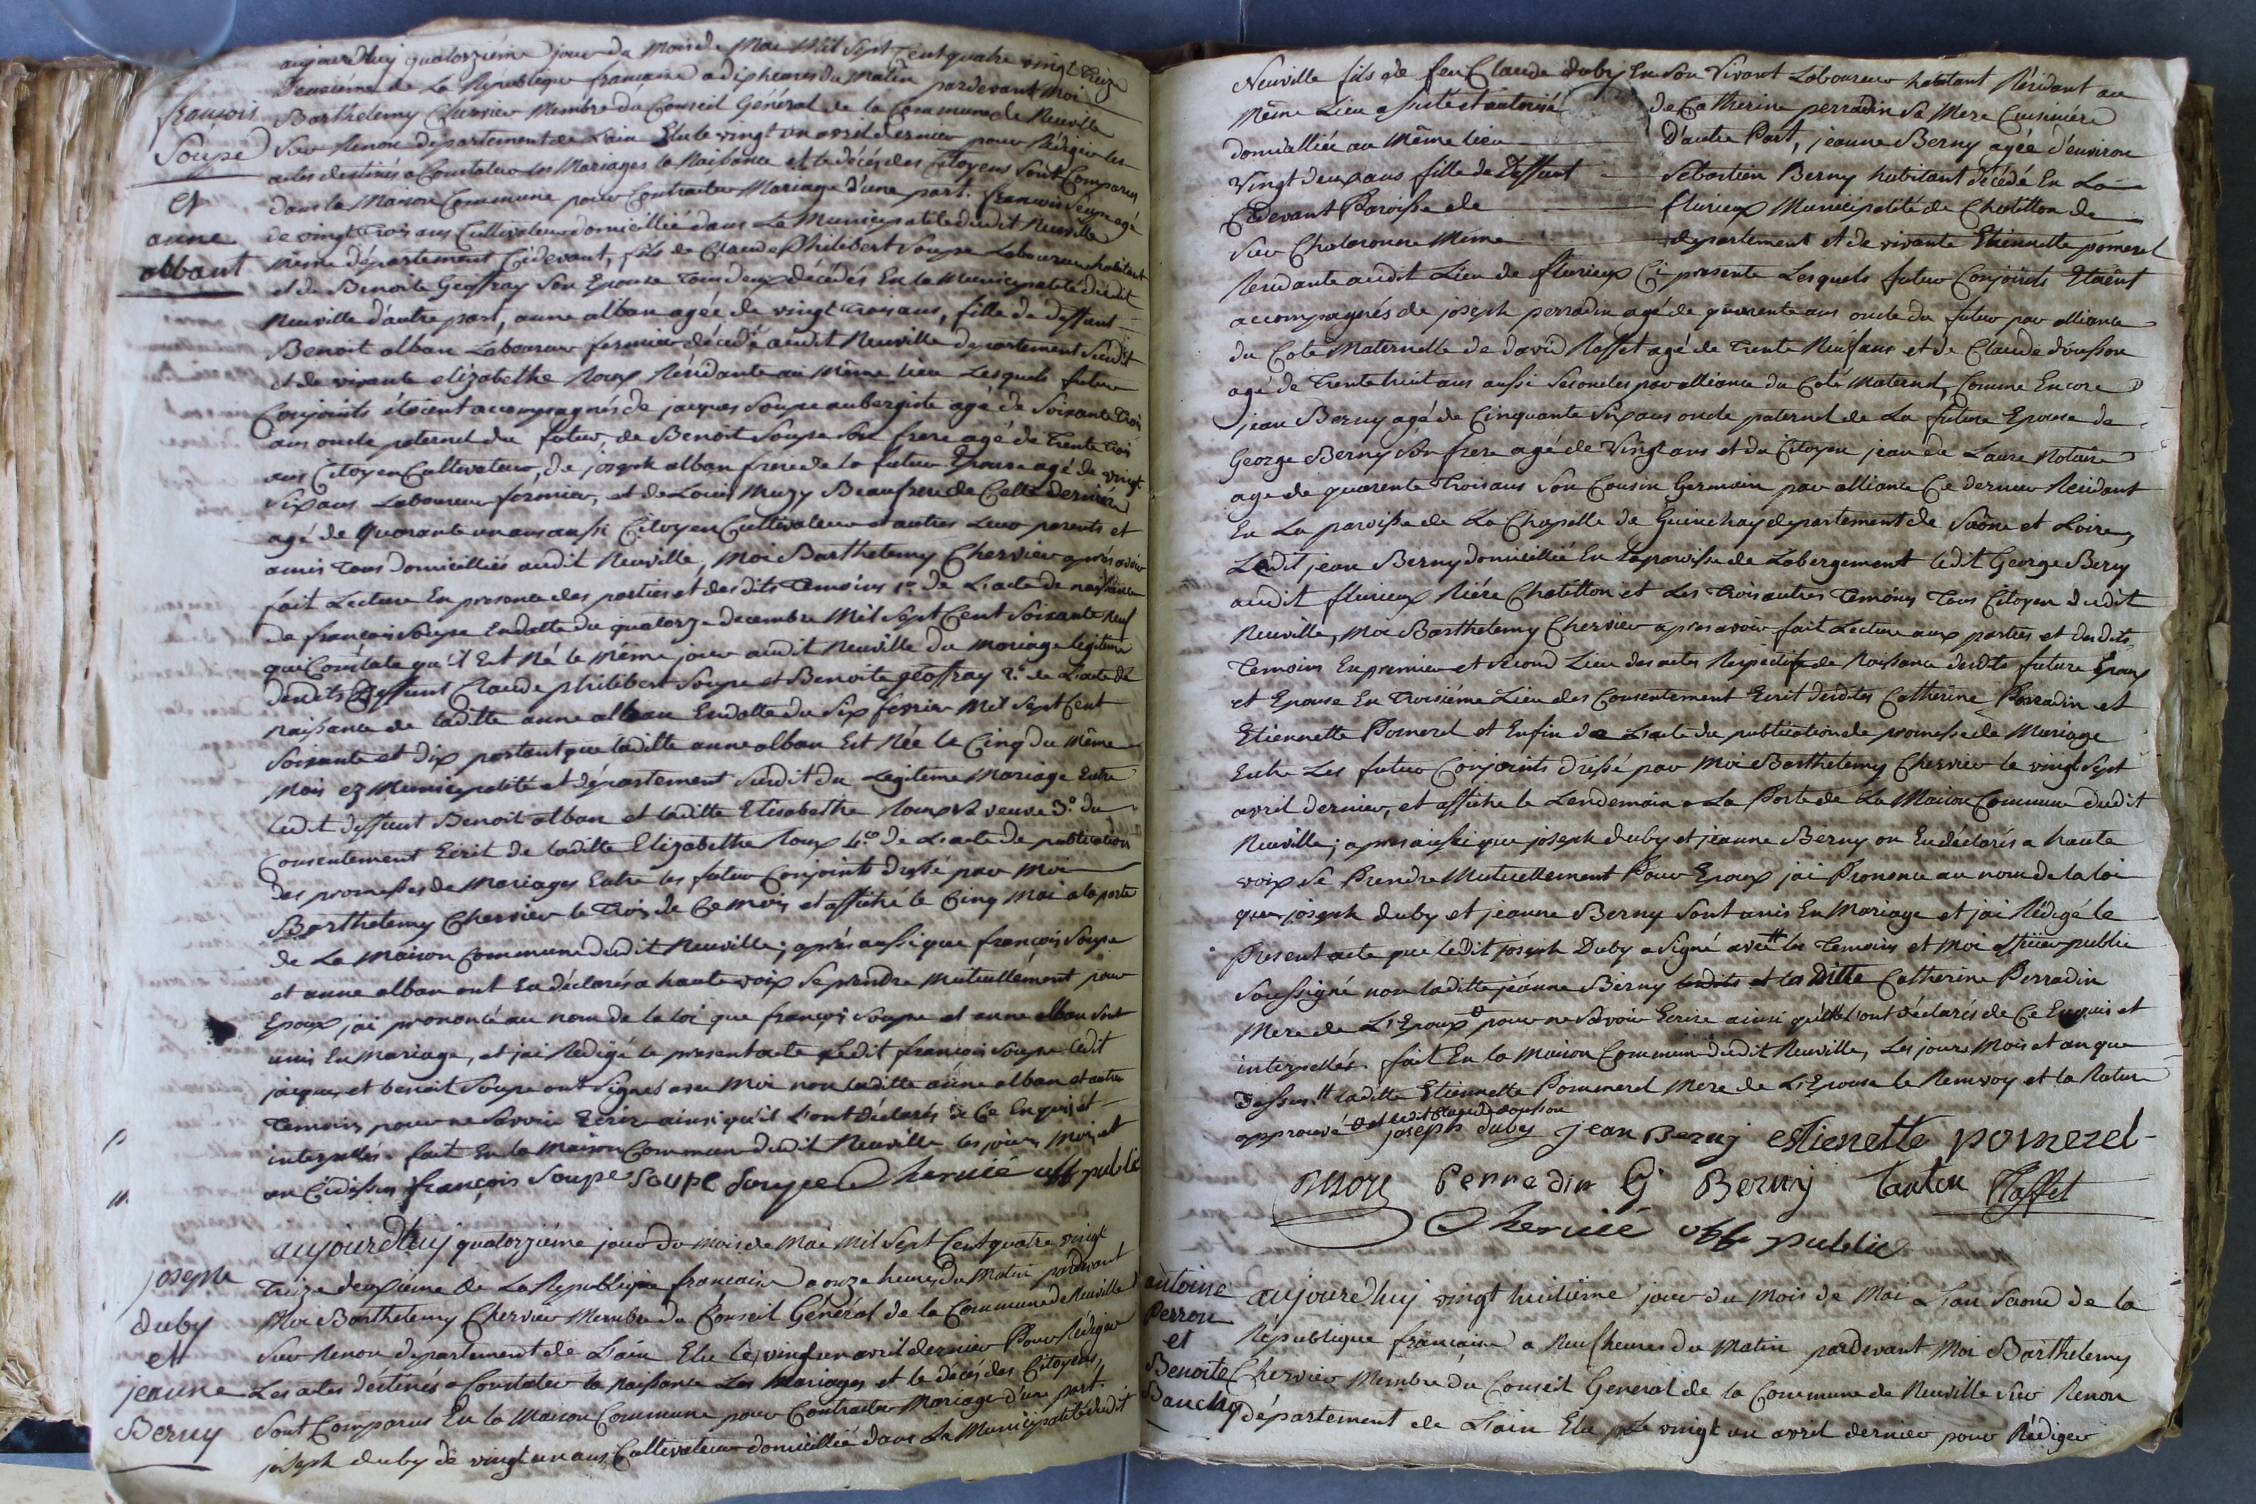 aujourdhuy quatorzième jour du mois de Mai Mil Sept Cent quatre vingt treize
Deuxième de La République française a dix heures du Matin pardevant Moi
Barthelemy Chervier Membre du Conseil Général de la Commune de Neuville
françois
Soupe
et
anne
alban
Sur Renon département de Lain Elu le vingt un avril dernier pour Rédiger les
actes destinés a Constater les Mariages la Naissance et le décès des Citoyens Sont Comparus
dans la Maison Commune pour Contracter Mariage d'une part. françois Soupe agé
de vingt trois ans Cultivateur domicillié dans La Municipalité dudit Neuville
même département Cidevant, fils de Claude Philibert Soupe Laboureur habitant
et de Benoite Geoffray Son Epouse tous deux décédés En la Municipalité dudit
Neuville d'autre part, anne alban agée de vingt trois ans, fille de deffunt
Benoit alban Laboureur fermier décédé audit Neuville département Susdit
et de vivante elizabethe Roux Résidante au même lieu Lesquels futurs
Conjoints étoient accompagnés de jacques Soupe aubergiste agé de Soixante trois
ans oncle paternel du futur, de Benoit Soupe Son frere agé de trente trois
ans Citoyen Cultivateur, de joseph alban frere de la future Epouse agé de vingt
Six ans Laboureur fermier, et de Louis Muzy Beaufrere de Cette derniere
agé de Quarante un ans aussi Citoyen Cultivateur et autres Leurs parents et
amis tous domicilliés audit Neuville, Moi Barthelemy Chervier après avoir
fait Lecture En presence des parties et desdits temoins 1.º de L'acte de naissance
de françois Soupe En datte du quatorze decembre Mil Sept Cent Soixante Neuf
qui Constate qu'il Est Né le même jour audit Neuville du Mariage legitime
desdits deffunt Claude philibert Soupe et Benoite géoffray 2.º de L'acte de
naissance de laditte anne alban En datte du Six fevrier Mil Sept Cent
Soixante et dix portant que laditte anne alban Est Née le Cinq du même
Mois ez Municipalité et département Susdit du Legitime Mariage Entre
ledit deffunt Benoit alban et laditte Elisabethe Roux Sa veuve 3.º du
Consentement Ecrit de laditte Elizabethe Roux 4.º de L'acte de publication
des promesses de Mariages Entre les futurs Conjoints dressé par Moi
Barthelemy Chervier le trois de Ce mois et affiché le Cinq Mai a la porte
de La Maison Commune dudit Neuville; après aussi que françois Soupe
et anne alban ont Eu déclarés a haute voix Se prendre Mutuellement pour
Epoux jai prononcé au nom de la loi que françois Soupe et anne alban Sont
unis En Mariage, et jai Rédigé le present acte Ledit françois Soupe ledit
jacques et benoit Soupe ont Signés avec Moi non laditte anne alban et autres
temoins pour ne Savoir Ecrire ainsi qu'il L'ont déclarés de Ce Enquis et
interpellés. fait En la Maison Commun dudit Neuville les jours, Mois et
an Cidessus françois Soupe Soupe Soupe Chervié off public
aujourdhuy quatorzième jour du mois de Mai Mil Sept Cent quatre vingt
joseph
duby
et
jeanne
Berny
Treize deuxième de La République française a onze heures du Matin pardevant
Moi Barthelemy Chervier Membre du Conseil Général de la Commune de Neuville
Sur Renon departement de Lain Elu le vingt un avril dernier Pour Rédiger
Les actes destinés a Constater la Naissance Les Mariages et le décès des Citoyens,
Sont Comparus En la Maison Commune pour Contracter Mariage d'une part.
joseph duby de vingt un ans Cultivateur domicillié dans La Municipalité dudit
Neuville fils de feu Claude duby En Son Vivant Laboureur habitant Résidant au
Même Lieu assisté et autorisé de Catherine perradin Sa Mere Cuisinière
domicilliée au Même lieu D'autre Part, jeanne Berny agée d'environ
vingt deux ans fille de Deffunt Sebastien Berny habitant décédé En La
Cidevant Paroisse de flurieux Municipalité de Chatillon de
Sur Chalaronne Même département et de vivante Etiennette pomerel
Residante audit Lieu de flurieux Ci presente Lesquels futurs Conjoints Etoient
accompagnés de joseph perradin agé de quarente ans oncle du futur par alliance
du Coté Maternelle de david Raffet agé de trente Neuf ans et de Claude dousson
agé de trente huit ans aussi Ses oncles par alliance du Coté Maternel, Comme Encore
jean Berny agé de Cinquante Six ans oncle paternel de La future Epouse de
George Berny Son frere agé de Vingt ans et du Citoyen jean de Laure Notaire
age de quarente trois ans Son Cousin Germain par alliance Ce dernier Residant
En La paroisse de La Chapelle de Guinchay departement de Saône et Loire,
Ledit jean Berny domicillié En la paroisse de Labergement ledit George Berny
audit flurieux Rière Chatillon et Les trois autres temoins tous Citoyen dudit
Neuville, Moi Barthelemy Chervier apres avoir fait Lecture aux parties et desdits
temoins En premier et second Lieu des actes Respectifs de Naissance desdits futurs Epoux
et Epouse En troisième Lieu des Consentement Ecrit desdites Catherine Perradin et
Etiennette Pomerel et Enfin de L'acte du publication de promesse de Mariage
Entre Les futurs Conjoints dressé par Moi Barthelemy Chervier le vingt Sept
avril dernier, et affiché le Lendemain a La Porte de la Maison Commune dudit
Neuville; apres aussi que joseph duby et jeanne Berny on Eu déclarés a haute
voix Se Prendre Mutuellement Pour Epoux jai Prononcé au nom de la loi
que joseph duby et jeanne Berny Sont unis En Mariage et jai Rédigé le
Present acte que ledit joseph Duby a Signé avec les temoins et Moi officier public
Soussigné non laditte jeanne Berny et la ditte Catherine Perradin
Mere de L'Epoux pour ne Savoir Ecrire ainsi qu'elle L'ont déclarés de Ce Enquis et
interpellés. fait En la Maison Commun dudit Neuville, Les jours Mois et an que
dessus laditte Etiennette Pommerel Mere de L'Epouse le Renvoy et la Rature
approuvé et ledit Claude dousson
joseph duby jean Berny estienette pomerel
Perradin G Berny Raffet
Chervié off public
antoine
Perron
et
Benoite
Banchy
aujourdhuy vingt huitième jour du Mois de Mai L'an Second de la
République française a Neuf heures du Matin pardevant Moi Barthelemy
Chervier Membre du Conseil General de la Commune de Neuville Sur Renon
département de Lain Elu le vingt un avril dernier pour Rédiger